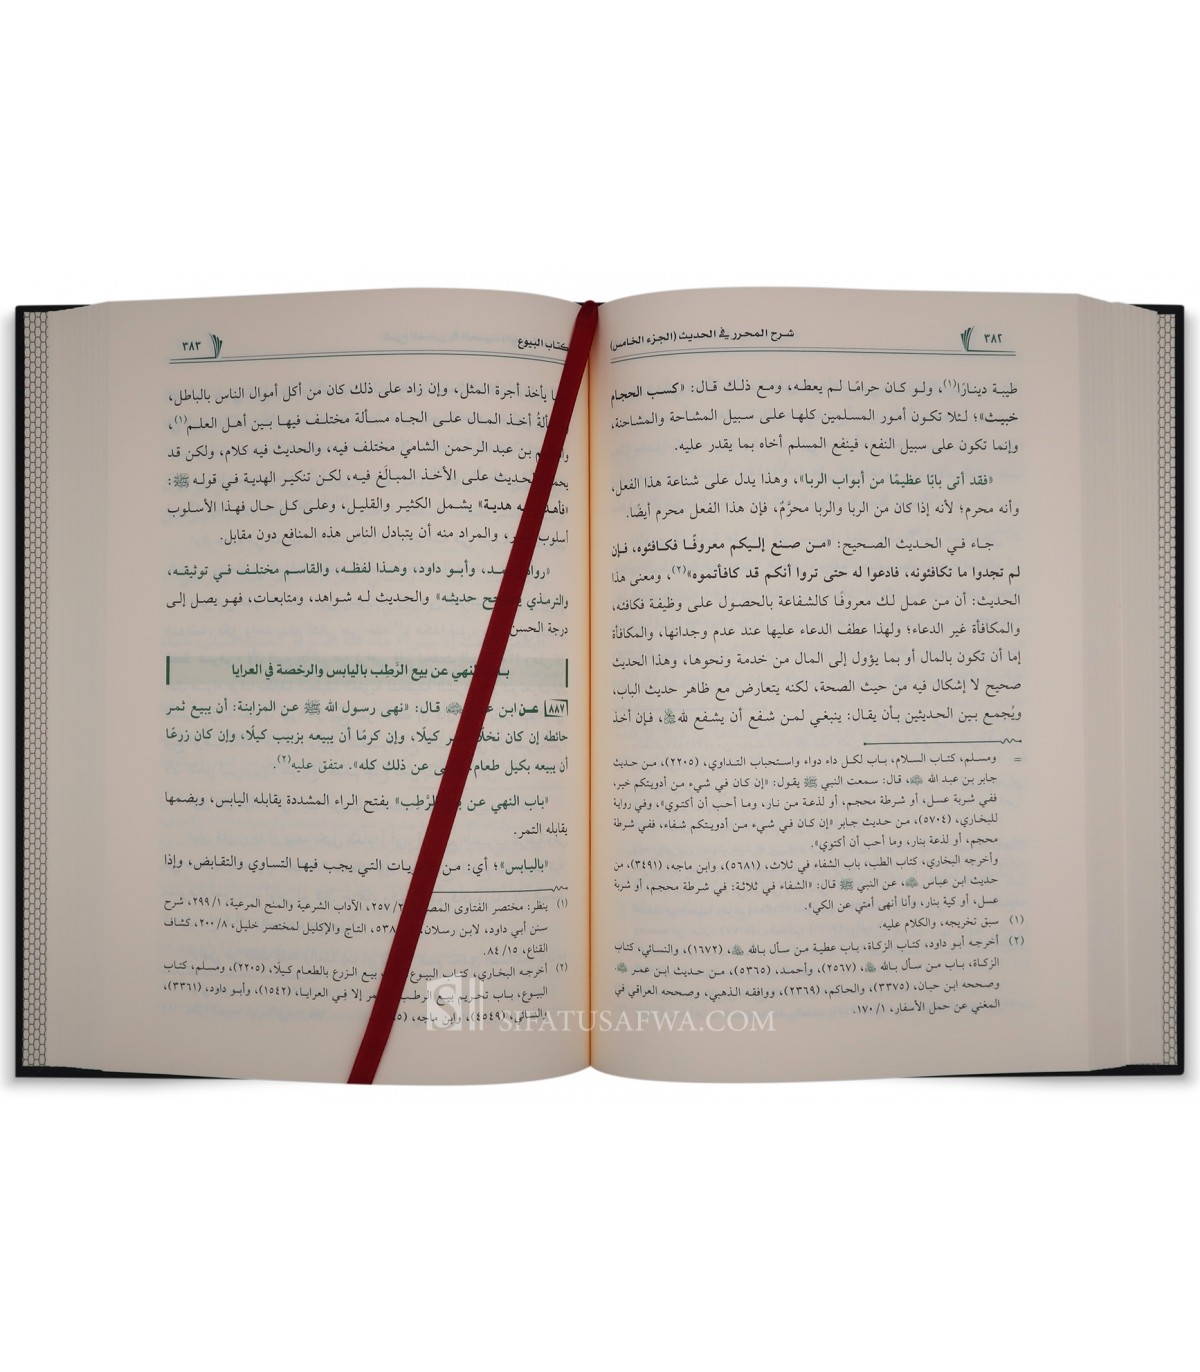 ٣٨٢
شرح المحرر في الحديث (الجزء الخامس)
طيبة دينارًا(١)، ولو كان حرامًا لم يعطه، ومع ذلك قال: «كسب الحجام
خبيث»؛ لئلا تكون أمور المسلمين كلها على سبيل المشاحة والمشاحنة،
وإنما تكون على سبيل النفع، فينفع المسلم أخاه بما يقدر عليه.
«فقد أتى بابًا عظيمًا من أبواب الربا»، وهذا يدل على شناعة هذا الفعل،
وأنه محرم؛ لأنه إذا كان من الربا والربا محرَّم، فإن هذا الفعل محرم أيضًا.
جاء في الحديث الصحيح: «من صنع إليكم معروفًا فكافئوه، فإن
لم تجدوا ما تكافئونه، فادعوا له حتى تروا أنكم قد كافأتموه»(٢)، ومعنى هذا
الحديث: أن من عمل لك معروفًا كالشفاعة بالحصول على وظيفة فكافئه،
والمكافأة غير الدعاء؛ ولهذا عطف الدعاء عليها عند عدم وجدانها، والمكافأة
إما أن تكون بالمال أو بما يؤول إلى المال من خدمة ونحوها، وهذا الحديث
صحيح لا إشكال فيه من حيث الصحة، لكنه يتعارض مع ظاهر حديث الباب،
ويُجمع بين الحديثين بأن يقال: ينبغي لمن شفع أن يشفع لله ﷻ، فإن أخذ
= ومسلم، كتاب السلام، باب لكل داء دواء واستحباب التداوي، (٢٢٠٥)، من حديث
جابر بن عبد الله ﵁، قال: سمعت النبي ﷺ يقول: «إن كان في شيء من أدويتكم خير،
ففي شربة عسل، أو شرطة محجم، أو لذعة من نار، وما أحب أن أكتوي»، وفي رواية
للبخاري، (٥٧٠٤)، من حديث جابر «إن كان في شيء من أدويتكم شفاء، ففي شرطة
محجم، أو لذعة بنار، وما أحب أن أكتوي».
وأخرجه البخاري، كتاب الطب، باب الشفاء في ثلاث، (٥٦٨١)، وابن ماجه، (٣٤٩١)، من
حديث ابن عباس ﵄، عن النبي ﷺ قال: «الشفاء في ثلاثة: في شرطة محجم، أو شربة
عسل، أو كية بنار، وأنا أنهى أمتي عن الكي».
(١) سبق تخريجه، والكلام عليه.
(٢) أخرجه أبو داود، كتاب الزكاة، باب عطية من سأل بالله ﷻ، (١٦٧٢)، والنسائي، كتاب
الزكاة، باب من سأل بالله ﷻ، (٢٥٦٧)، وأحمد، (٥٣٦٥)، من حديث ابن عمر ﵄.
وصححه ابن حبان، (٣٣٧٥)، والحاكم، (٢٣٦٩)، ووافقه الذهبي، وصححه العراقي في
المغني عن حمل الأسفار، ١٧٠/١.
كتاب البيوع
٣٨٣
يأخذ أجرة المثل، وإن زاد على ذلك كان من أكل أموال الناس بالباطل،
أخذ المال على الجاه مسألة مختلف فيها بين أهل العلم(١)،
بن عبد الرحمن الشامي مختلف فيه، والحديث فيه كلام، ولكن قد
على الأخذ المبالَغ فيه، لكن تنكير الهدية في قوله ﷺ:
هدية» يشمل الكثير والقليل، وعلى كل حال فهذا الأسلوب
أسلوب والمراد منه أن يتبادل الناس هذه المنافع دون مقابل.
وأبو داود، وهذا لفظه، والقاسم مختلف في توثيقه،
والترمذي حديثه» والحديث له شواهد، ومتابعات، فهو يصل إلى
درجة الحسن
النهي عن بيع الرَّطب باليابس والرخصة في العرايا
٨٨٧ عن ابن قال: «نهى رسول الله ﷺ عن المزابنة: أن يبيع ثمر
حائطه إن كان كيلًا، وإن كرمًا أن يبيعه بزبيب كيلًا، وإن كان زرعًا
أن يبيعه بكيل طعام، عن ذلك كله». متفق عليه(٢).
«باب النهي عن الرَّطِب» بفتح الراء المشددة يقابله اليابس، وبضمها
يقابله التمر.
«باليابس»؛ أي: من التي يجب فيها التساوي والتقابض، وإذا
(١) ينظر: مختصر الفتاوى ٢٥٧، الآداب الشرعية والمنح المرعية، ٢٩٩/١، شرح
سنن أبي داود، لابن رسلان، التاج والإكليل لمختصر خليل، ٢٠٠/٨، كشاف
القناع، ٨٤/١٥.
(٢) أخرجه البخاري، كتاب البيوع بيع الزرع بالطعام كيلًا، (٢٢٠٥)، ومسلم، كتاب
البيوع، باب تحريم بيع الرطب إلا في العرايا، (١٥٤٢)، وأبو داود، (٣٣٦١)،
والنسائي، (٤٥٤٩)، وابن ماجه،
SIFATUSAFWA.COM